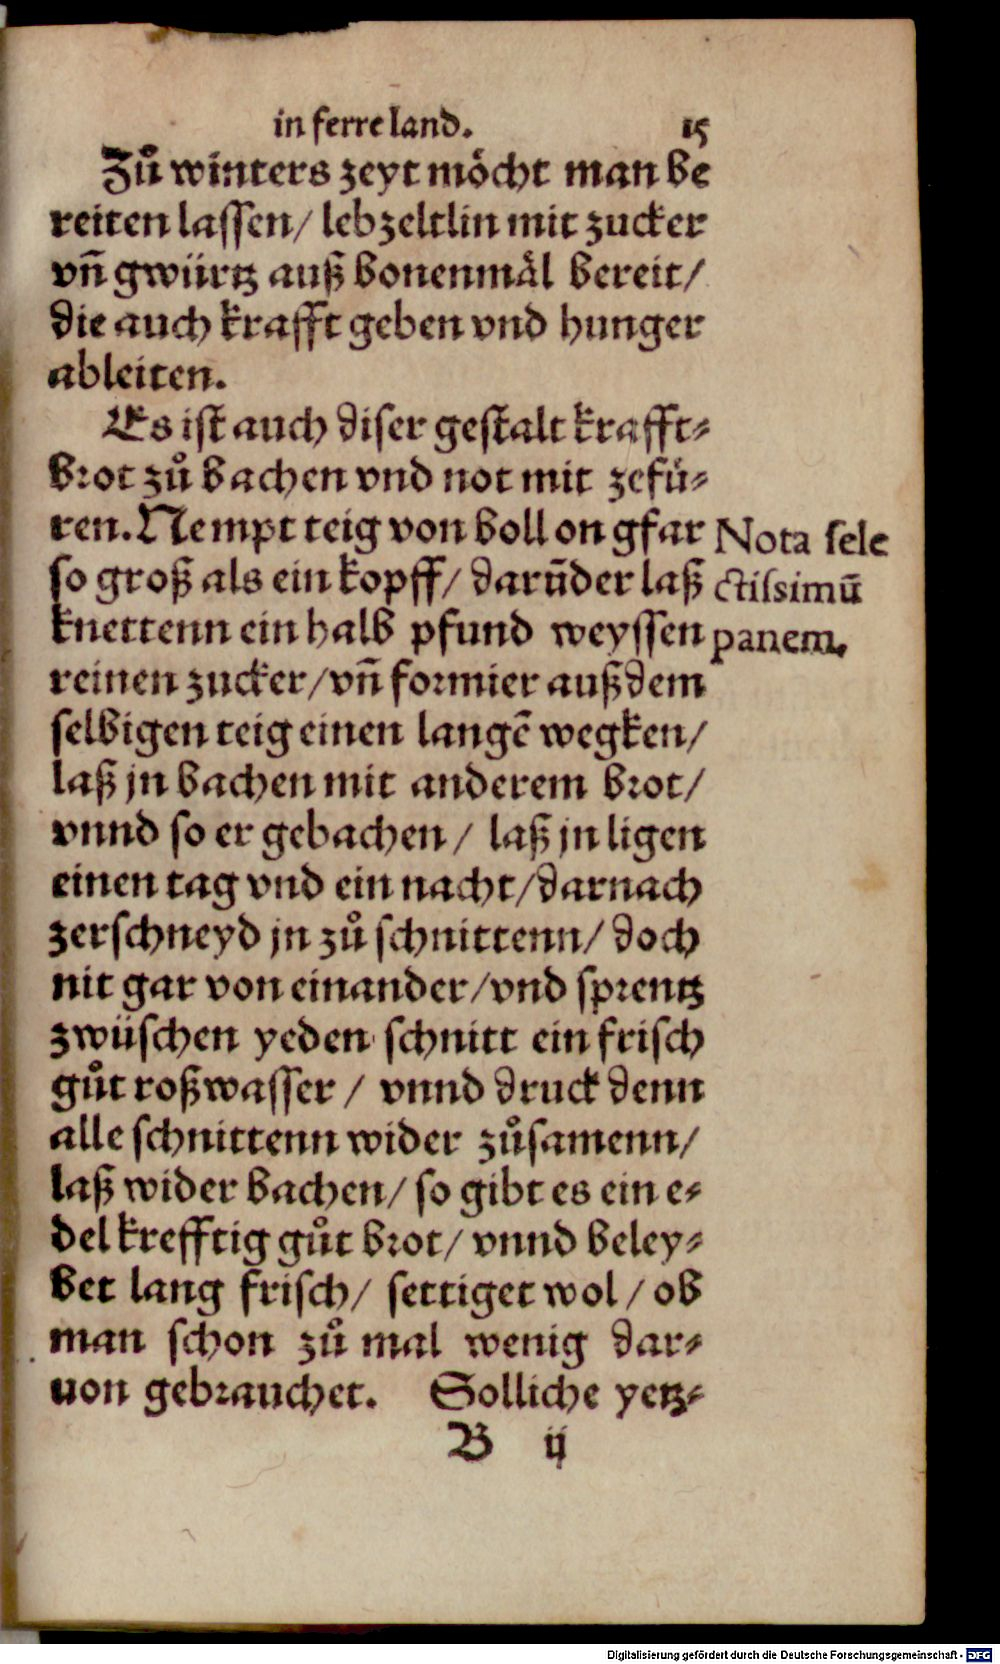 in ferre land. 15
Zů winters zeyt möcht man be
reiten lassen/ lebzeltlin mit zucker
vñ gwürtz auß bonenmäl bereit/
die auch krafft geben vnd hunger
ableiten.
Es ist auch diser gestalt krafft⸗
brot zů bachen vnd not mit zefü⸗
ren. Nempt teig von boll on gfar
so groß als ein kopff/ darũder laß
knettenn ein halb pfund weyssen
reinen zucker/ vñ formier auß dem
selbigen teig einen langẽ wegken/
laß jn bachen mit anderem brot/
vnnd so er gebachen/ laß jn ligen
einen tag vnd ein nacht/ darnach
zerschneyd jn zů schnittenn/ doch
nit gar von einander/ vnd sprentz
zwüschen yeden schnitt ein frisch
gůt roßwasser/ vnnd druck denn
alle schnittenn wider zůsamenn/
laß wider bachen/ so gibt es ein e⸗
del krefftig gůt brot/ vnnd beley⸗
bet lang frisch/ settiget wol/ ob
man schon zů mal wenig dar⸗
uon gebrauchet. Solliche yetz⸗
B ij
Nota sele
ctissimũ
panem.
Digitalisierung gefördert durch die Deutsche Forschungsgemeinschaft - DFG